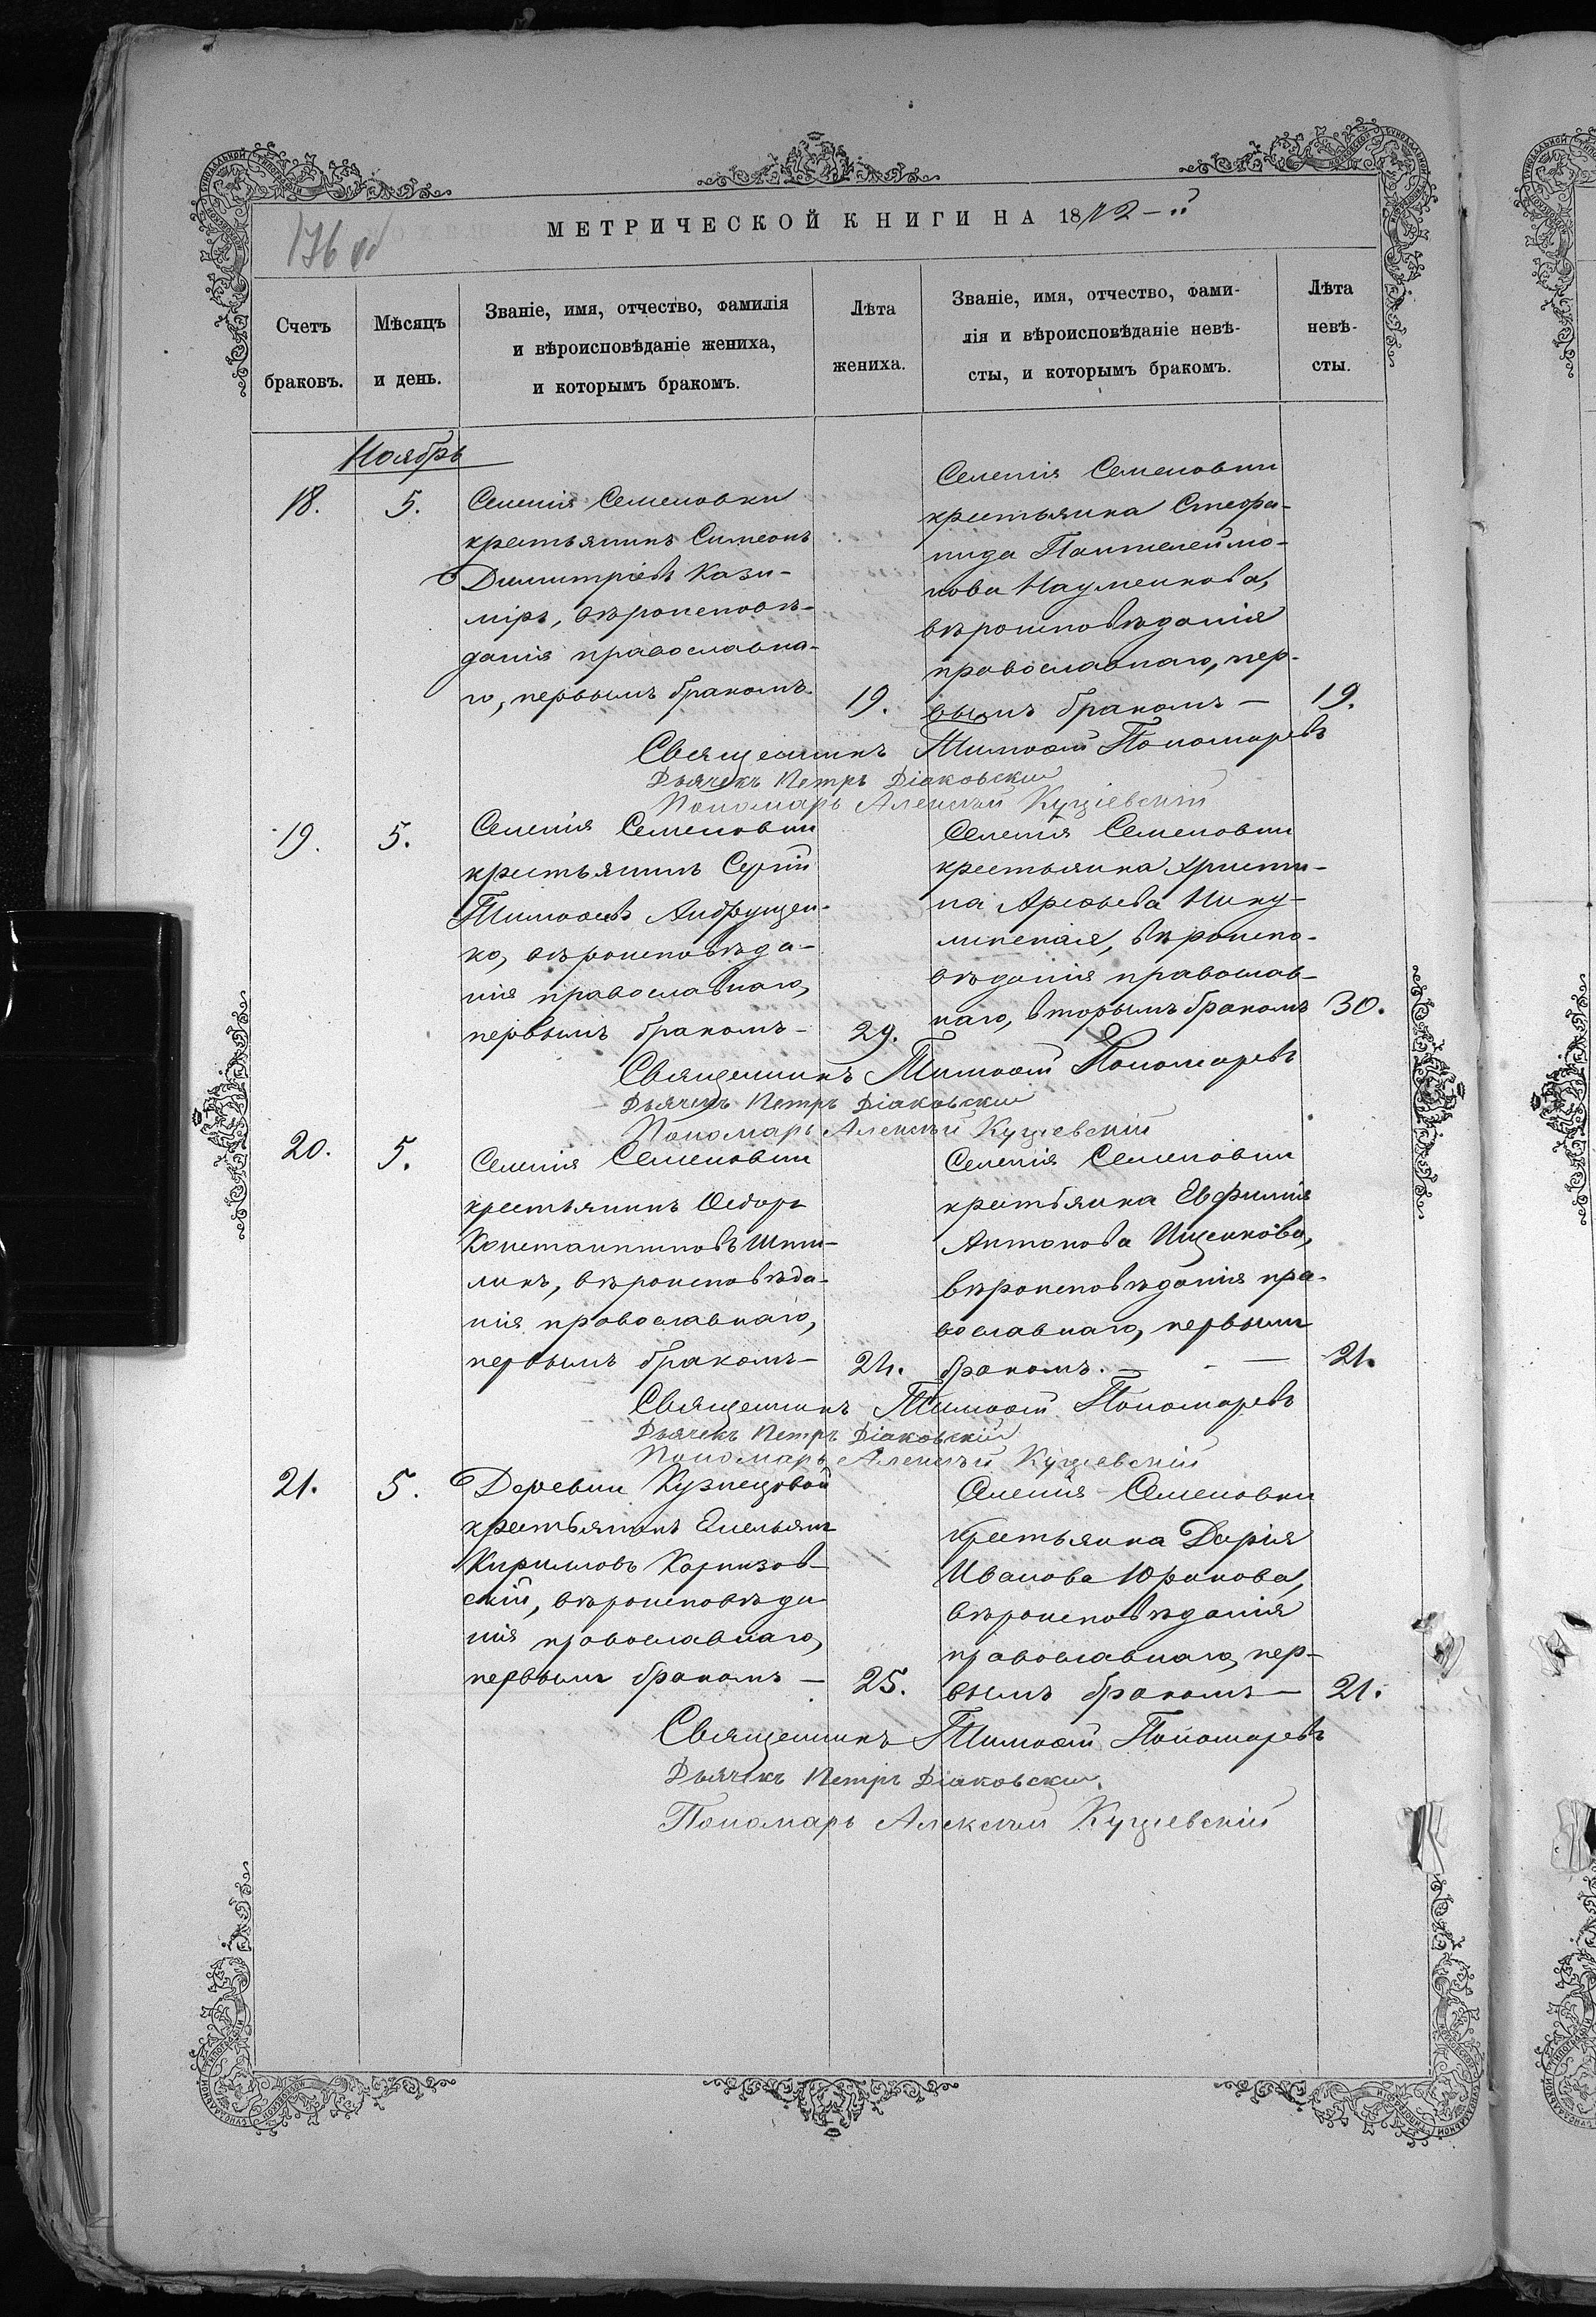 МЕТРИЧЕСКОЙ КНИГИ НА 1872-й
176 об
Счетъ браковъ.
Мѣсяцъ и день.
Званіе, имя, отчество, фамилія
и вѣроисповѣданіе жениха,
и которымъ бракомъ.
Лѣта
жениха.
Званіе, имя, отчество, фами-
лія и вѣроисповѣданіе невѣ-
сты, и которымъ бракомъ.
Лѣта
невѣ-
сты.
Ноябрь
18.
5.
Селенія Семеновки
крестьянинъ Симеонъ
Димитріевъ Кази-
міръ, вѣроисповѣ-
данія православна-
го, первымъ бракомъ.
19.
Селенія Семеновки
крестьянка Стефа-
нида Пантелеймо-
нова Науменкова,
вѣроисповѣданія
православнаго, пер-
вымъ бракомъ —
19.
Священникъ Тимоѳей Пономаревъ
Дьячекъ Петръ Діаковскій
Пономарь Алексѣй Кущевскій
19.
5.
Селенія Семеновки
крестьянинъ Сергій
Тимоѳеевъ Андрущен-
ко, вѣроисповѣда-
нія православнаго,
первымъ бракомъ —
29.
Селенія Семеновки
крестьянка Христи-
на Арефьева Нику-
линская, вѣроиспо-
вѣданія православ-
наго, вторымъ бракомъ
30.
Священникъ Тимоѳей Пономаревъ
Дьячекъ Петръ Діаковскій
Пономарь Алексѣй Кущевскій
20.
5.
Селенія Семеновки
крестьянинъ Ѳеодоръ
Константиновъ
вѣроисповѣда-
нія православнаго,
первымъ бракомъ —
24.
Селенія Семеновки
крестьянка Евфимія
Антонова Ищенкова,
вѣроисповѣданія пра-
вославнаго, первымъ
бракомъ. —
21.
Священникъ Тимоѳей Пономаревъ
Дьячекъ Петръ Діаковскій
Пономарь Алексѣй Кущевскій
21.
5.
Деревни Кузнецовой
крестьянинъ Емельянъ
Кирилловъ Карпизов-
скій, вѣроисповѣда
нія православнаго,
первымъ бракомъ —
25.
Селенія Семеновки
крестьянка Дарія
Иванова Юрикова,
вѣроисповѣданія
православнаго, пер-
вымъ бракомъ —
21.
Священникъ Тимоѳей Пономаревъ
Дьячекъ Петръ Діаковскій.
Пономарь Алексѣй Кущевскій